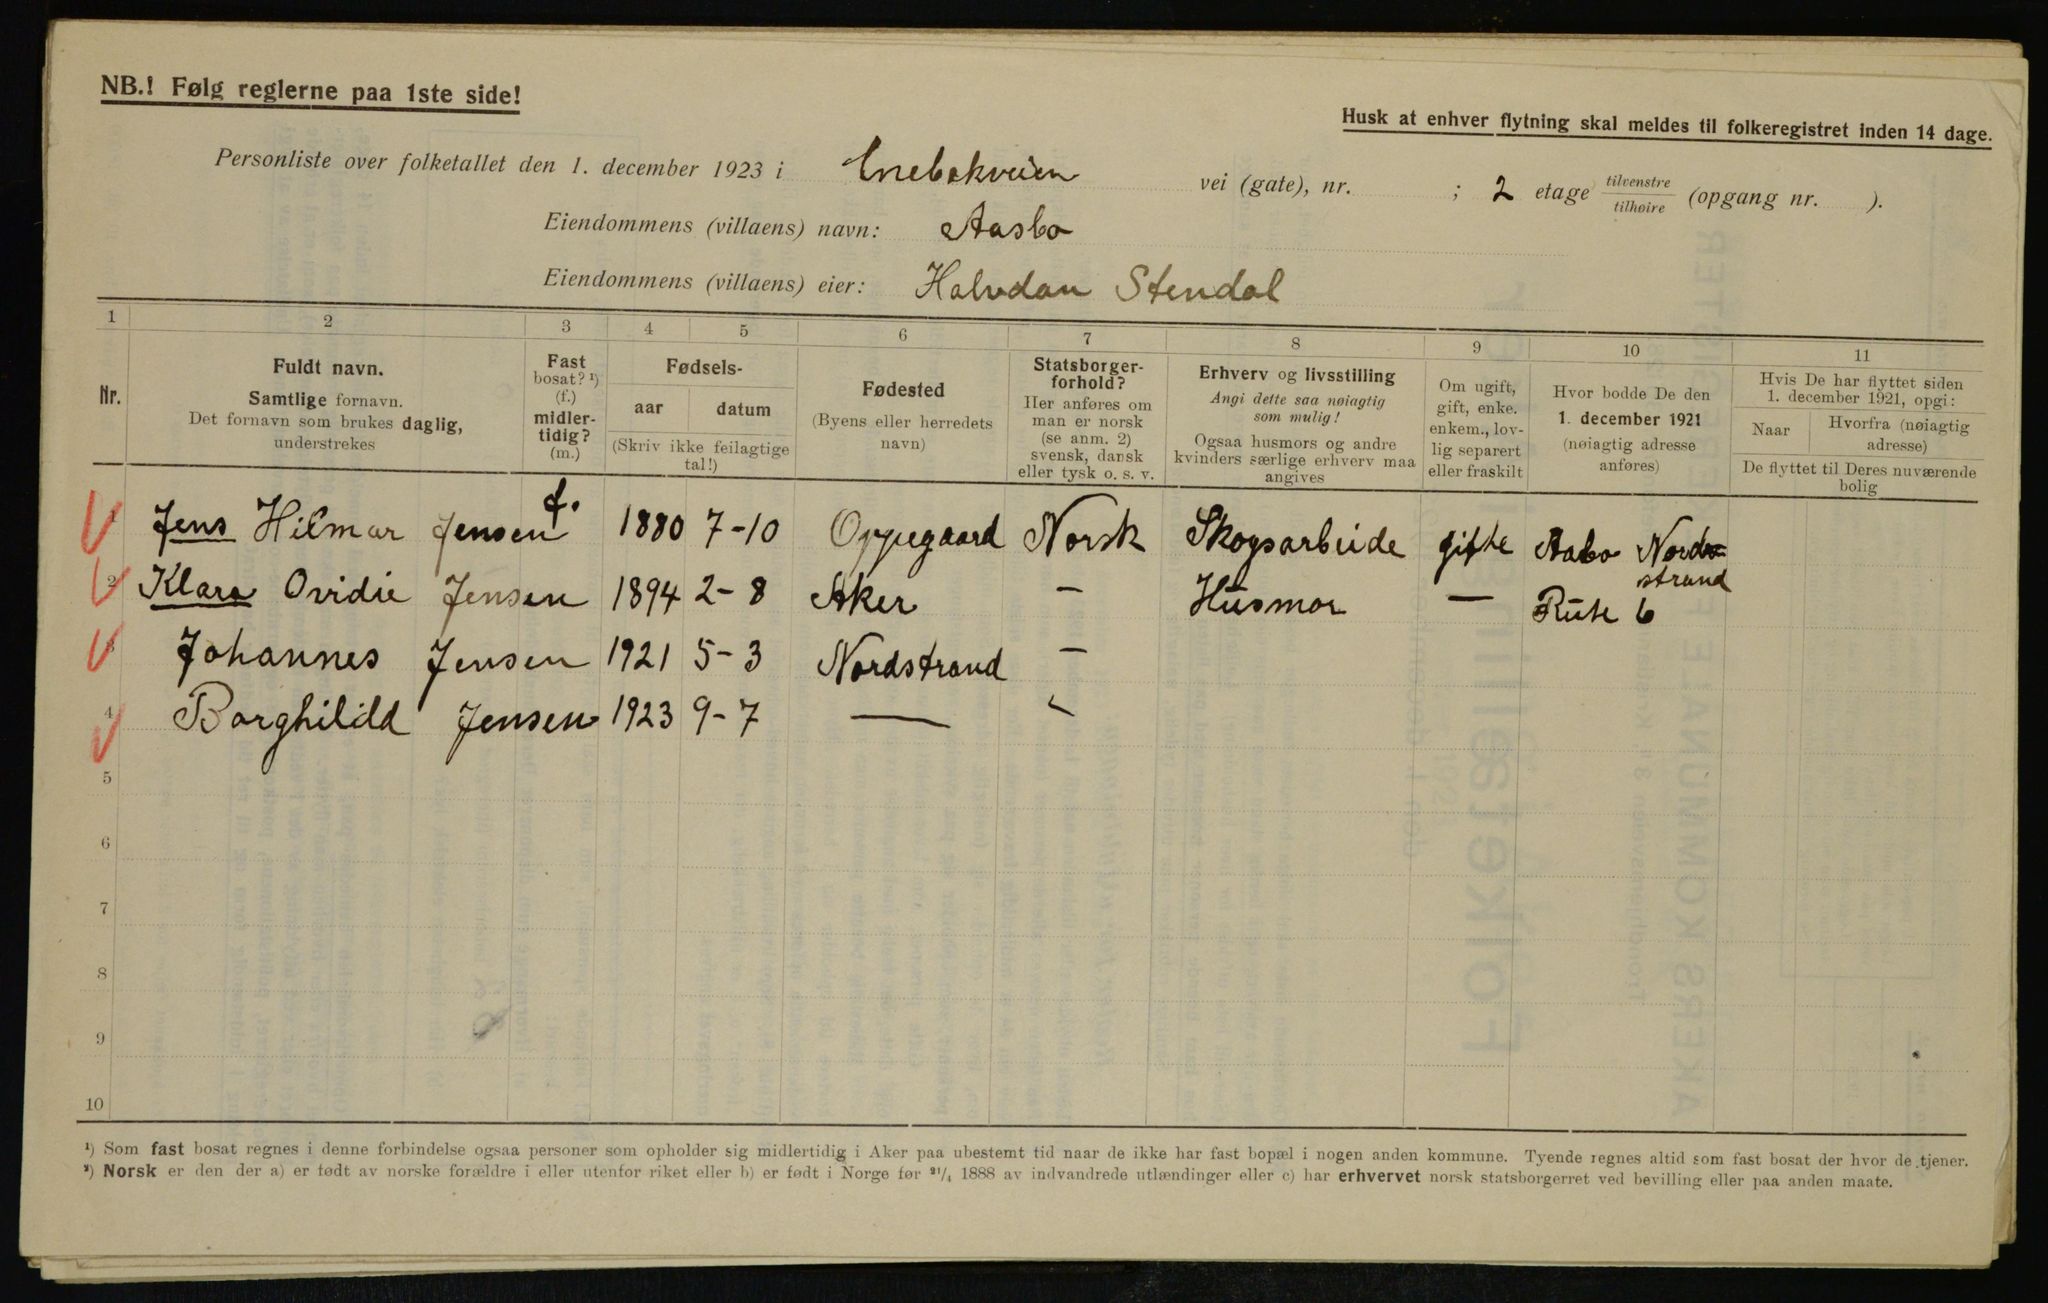 NB.! Følg reglerne paa 1ste side!
Husk at enhver flytning skal meldes til folkeregistret inden 14 dage.
Personliste over folketallet den 1. december 1923 i Enebakveien vei (gate), nr. ; 2 etage tilvenstre / tilhøire (opgang nr. ).
Eiendommens (villaens) navn: Aasbo
Eiendommens (villaens) eier: Halvdan Stendal
1 2 3 4 5 6 7 8 9 10 11
Nr.
Fuldt navn.
Samtlige fornavn.
Det fornavn som brukes daglig,
understrekes
Fast
bosat? ¹)
(f.)
midler-
tidig?
(m.)
Fødsels-
aar datum
(Skriv ikke feilagtige
tal!)
Fødested
(Byens eller herredets
navn)
Statsborger-
forhold?
Her anføres om
man er norsk
(se anm. 2)
svensk, dansk
eller tysk o. s. v.
Erhverv og livsstilling
Angi dette saa nøiagtig
som mulig!
Ogsaa husmors og andre
kvinders særlige erhverv maa
angives
Om ugift,
gift, enke.
enkem., lov-
lig separert
eller fraskilt
Hvor bodde De den
1. december 1921
(nøiagtig adresse
anføres)
Hvis De har flyttet siden
1. december 1921, opgi:
Naar Hvorfra (nøiagtig
adresse)
De flyttet til Deres nuværende
bolig
1 Jens Hilmar Jensen f. 1880 7-10 Oppegaard Norsk Skogsarbeide gifte Aabo Nord-
strand
2 Klara Ovidie Jensen 1894 2-8 Aker — Husmor — Rute 6
3 Johannes Jensen 1921 5-3 Nordstrand —
4 Borghildd Jensen 1923 9-7 — -
5
6
7
8
9
10
¹) Som fast bosat regnes i denne forbindelse ogsaa personer som opholder sig midlertidig i Aker paa ubestemt tid naar de ikke har fast bopæl i nogen anden kommune. Tyende regnes altid som fast bosat der hvor de tjener.
²) Norsk er den der a) er født av norske forældre i eller utenfor riket eller b) er født i Norge før ²¹/₄ 1888 av indvandrede utlændinger eller c) har erhvervet norsk statsborgerret ved bevilling eller paa anden maate.